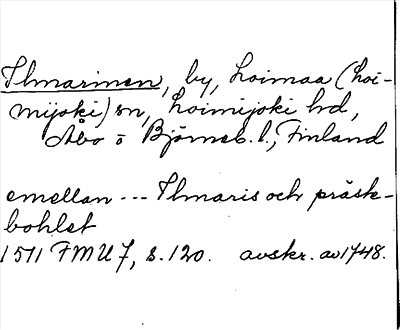 Ilmarinen, by, Loimaa (Loi-
mijoki) sn, Loimijoki hd,
Åbo o Björneb. l., Finland
emellan --- Ilmaris och präste-
bohlet
1511 FMU 7, s. 120. avskr. av 1748.